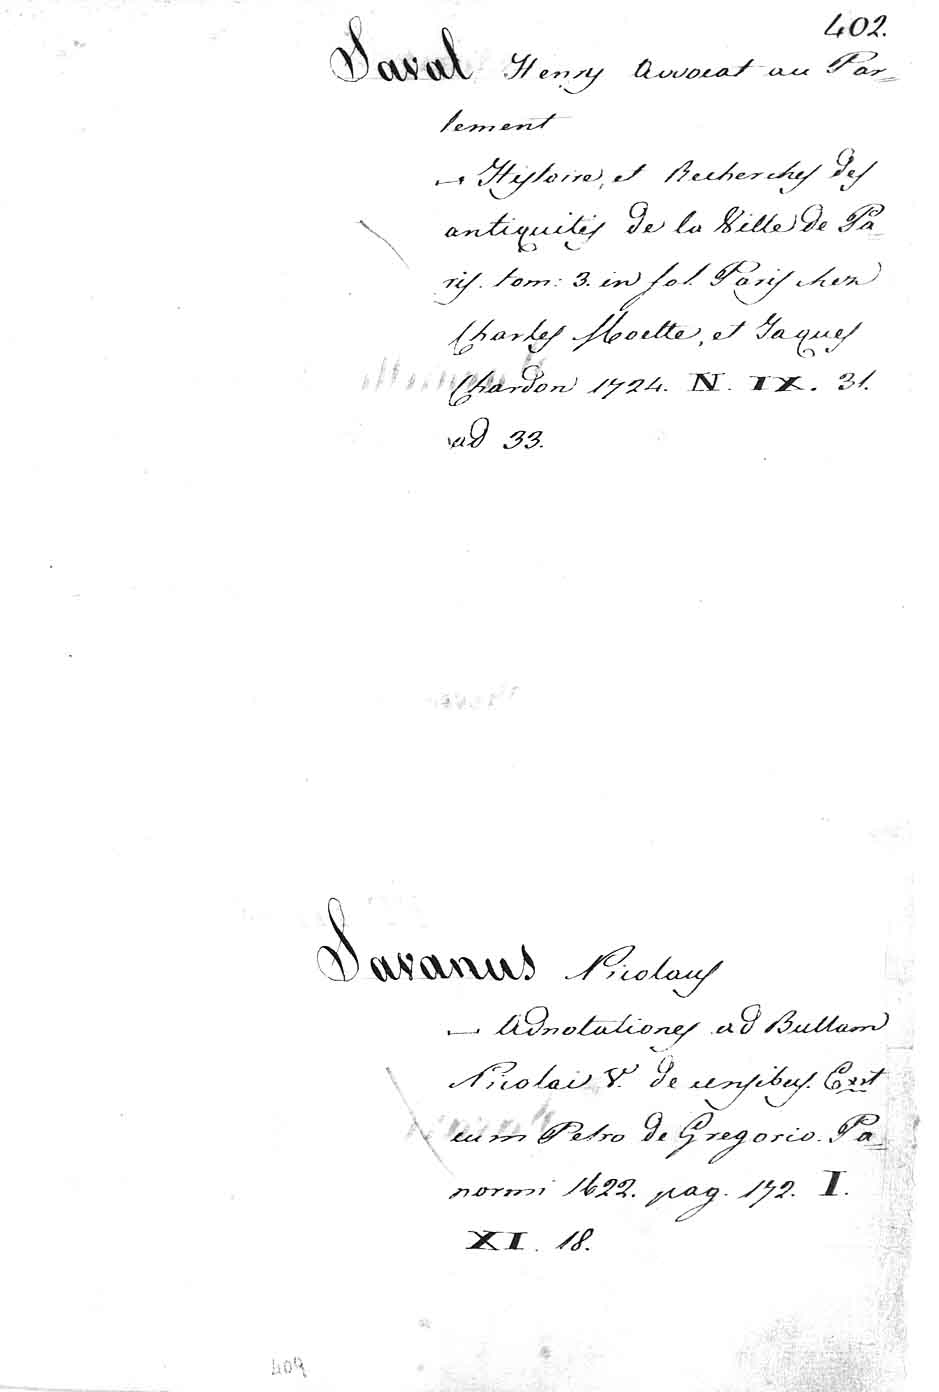 402.
Saval Henry Avvocat au Par=
lement
— Histoire, et Recherches des
antiquités de la Ville de Pa=
ris. tom: 3. in fol. Paris chez
Charles Moette, et Jaques
Chardon 1724. N. IX. 31.
ad 33.
Savanus Nicolaus
— Adnotationes ad Bullam
Nicolai V. de censibus. Exst
cum Petro de Gregorio. Pa=
normi 1622. pag. 172. I.
XI. 18.
409